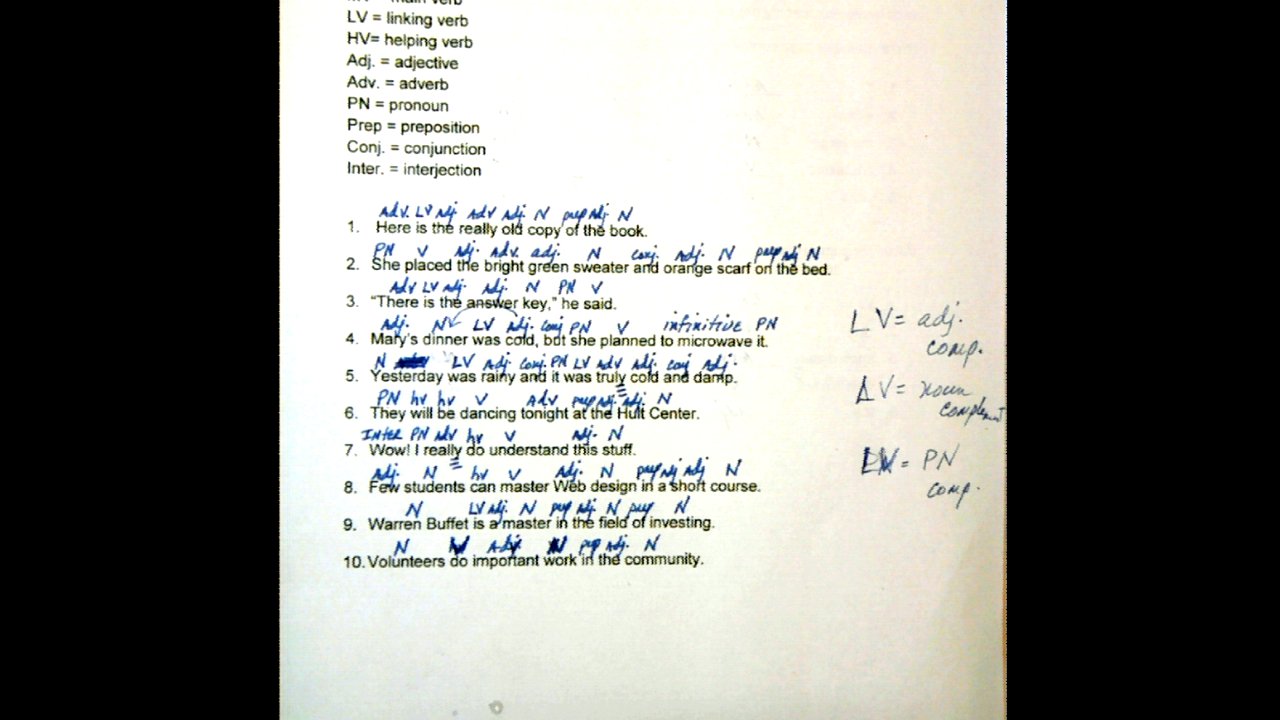 LV = linking verb
HV= helping verb
Adj. = adjective
Adv. = adverb
PN = pronoun
Prep = preposition
Conj. = conjunction
Inter. = interjection
Adv. LV Adj. Adv Adj. N prep Adj. N
1. Here is the really old copy of the book.
PN V Adj. Adv. adj. N conj. Adj. N prep Adj N
2. She placed the bright green sweater and orange scarf on the bed.
Adv LV Adj. Adj. N PN V
3. "There is the answer key," he said.
Adj. N LV Adj. conj PN V infinitive PN
4. Mary's dinner was cold, but she planned to microwave it.
N LV Adj. conj. PN LV Adv Adj. conj Adj.
5. Yesterday was rainy and it was truly cold and damp.
PN hv hv V Adv prep Adj. Adj. N
6. They will be dancing tonight at the Hult Center.
Inter PN Adv hv V Adj. N
7. Wow! I really do understand this stuff.
Adj. N hv V Adj. N prep Adj Adj N
8. Few students can master Web design in a short course.
N LV Adj. N prep Adj. N prep N
9. Warren Buffet is a master in the field of investing.
N Adj. N prep Adj. N
10. Volunteers do important work in the community.
LV = adj.
comp.
LV = noun
complement
LV = PN
comp.